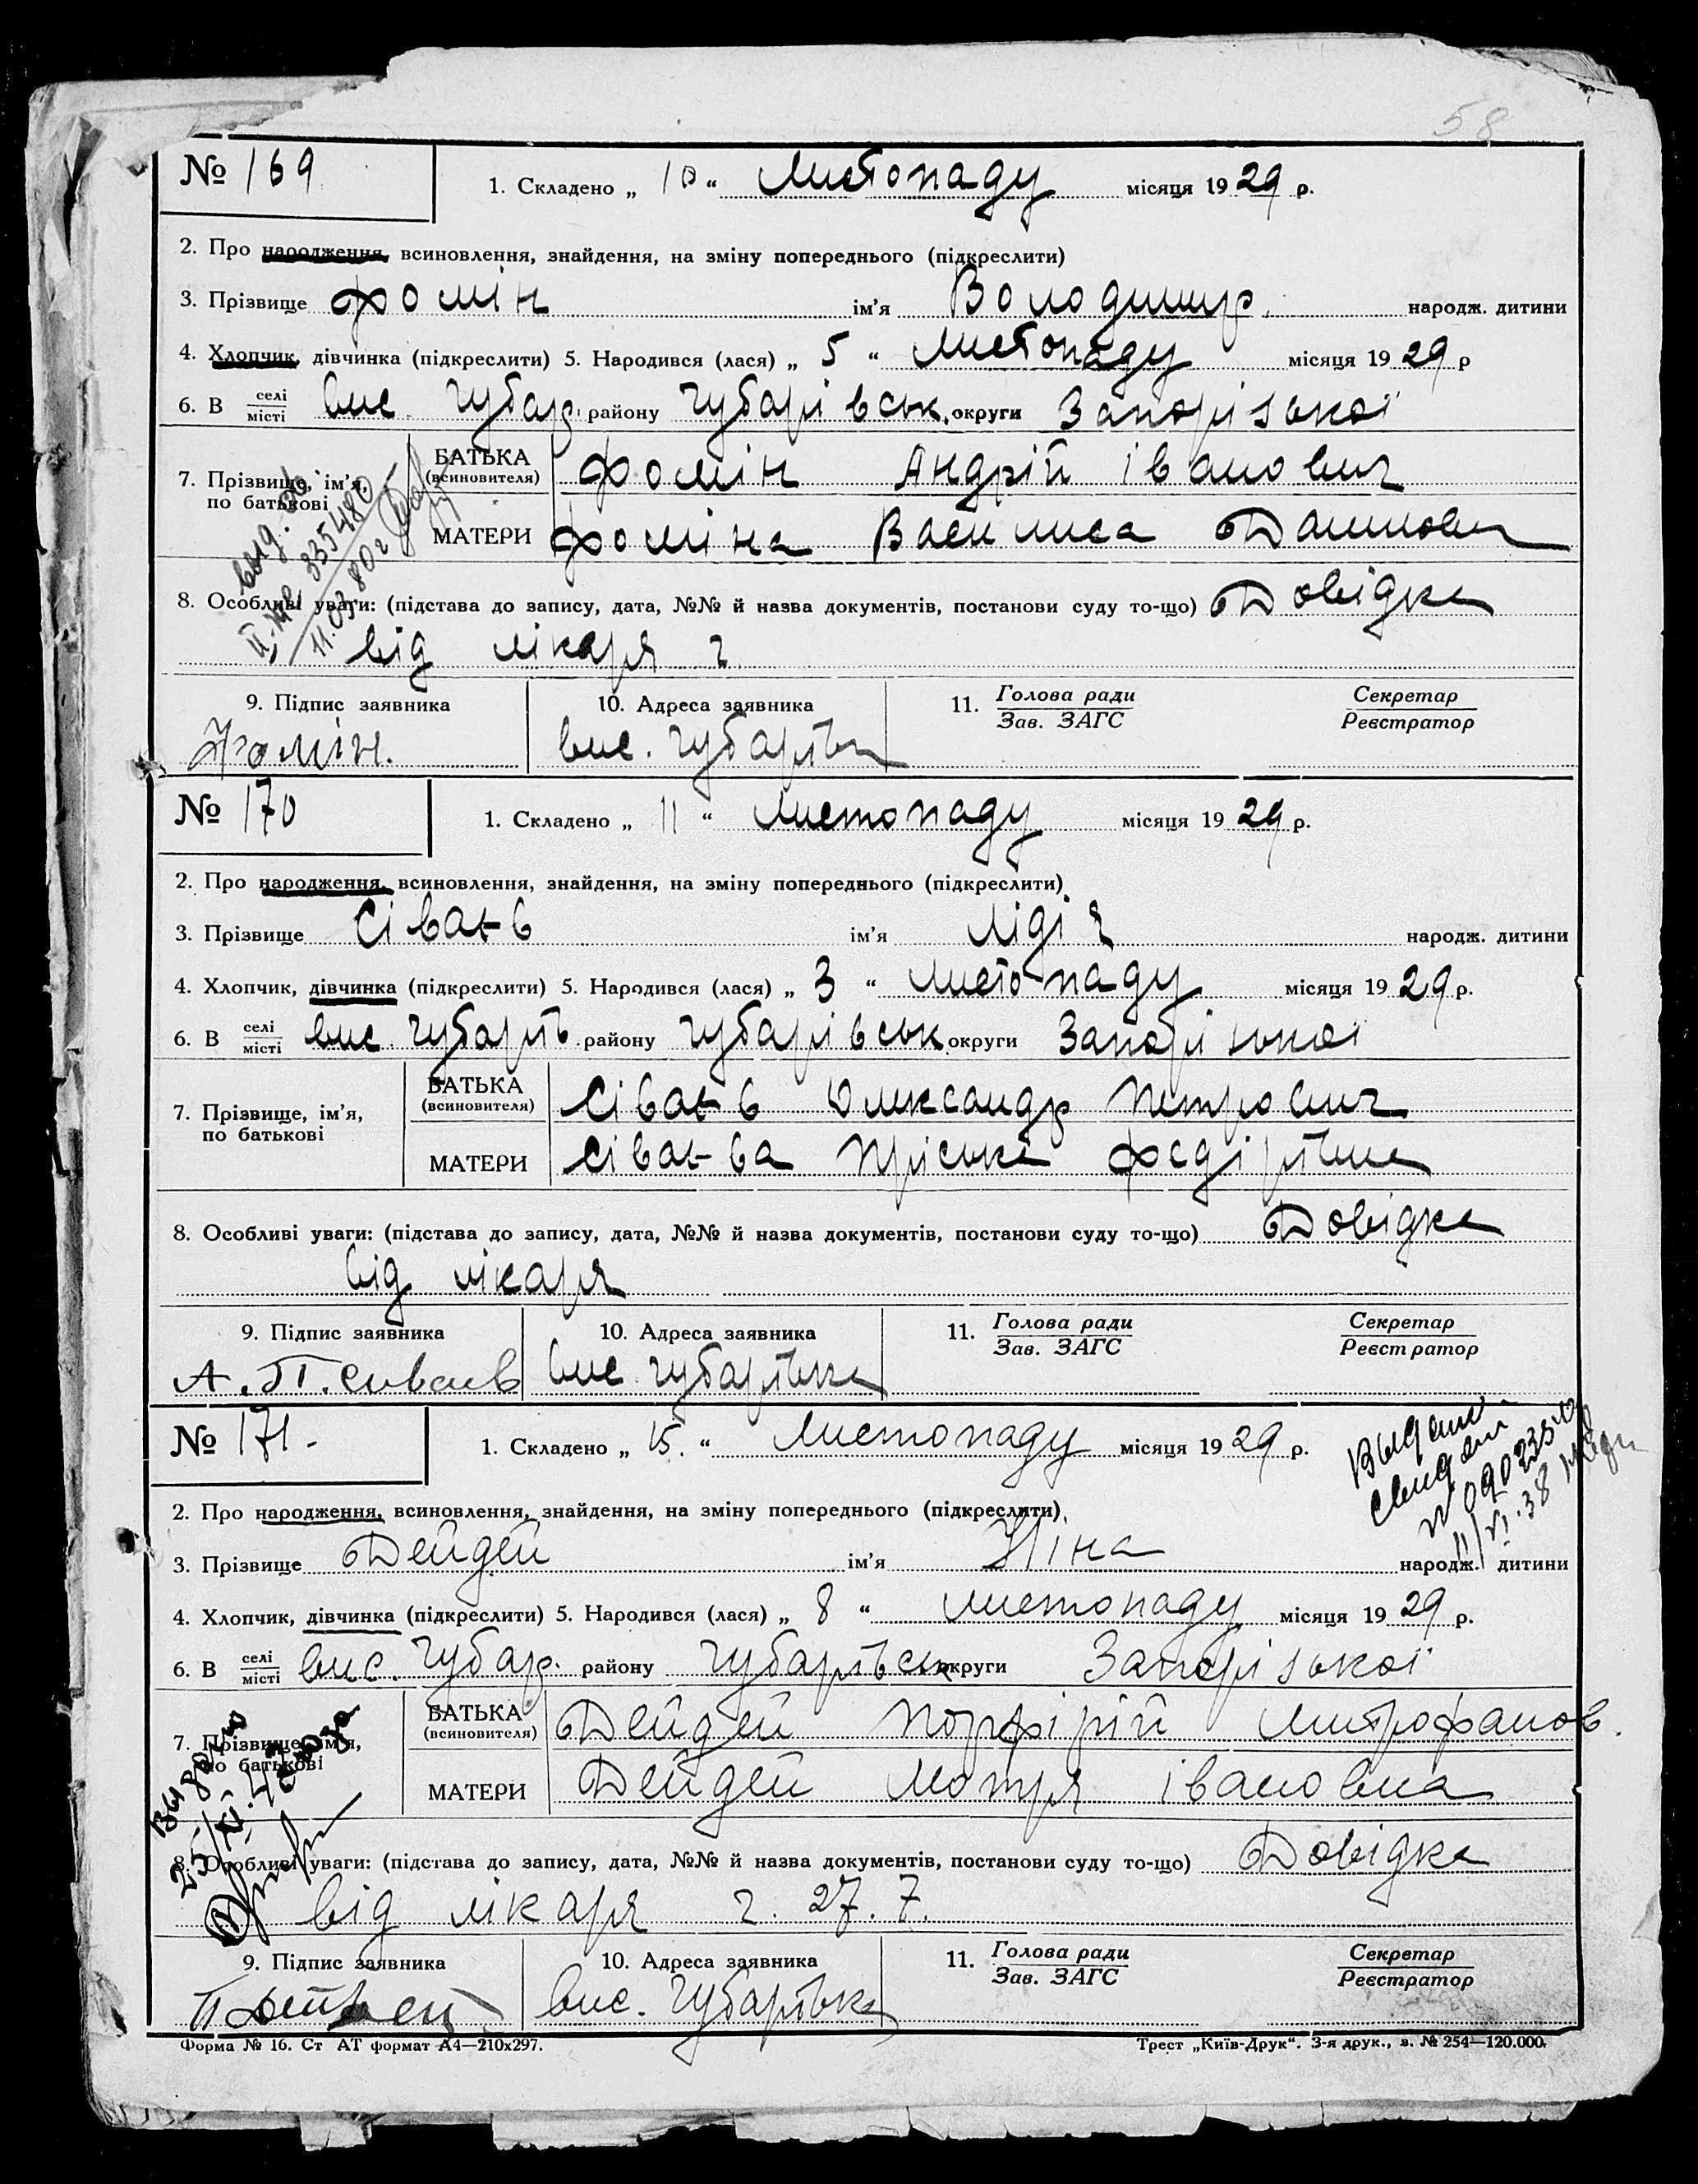 58
№ 169
1. Складено „ 10 “ Листопаду місяця 1929 р.
2. Про народження, всиновлення, знайдення, на зміну попереднього (підкреслити)
3. Прізвище Фомін ім'я Володимир народж. дитини
4. Хлопчик, дівчинка (підкреслити) 5. Народився (лася) „ 5 “ Листопаду місяця 1929 р
6. В селі місті вис. Губар. району Губарівськ. округи Запорізької
7. Прізвище, ім'я, по батькові
БАТЬКА (всиновителя) Фомін Андрій Іванович
МАТЕРИ Фоміна Василиса
выд. 335480
11.03 80 г
8. Особливі уваги: (підстава до запису, дата, №№ й назва документів, постанови суду то-що) Довідка
від лікаря г.
9. Підпис заявника
10. Адреса заявника
11. Голова ради Зав. ЗАГС
Секретар Реєстратор
Фомін.
вис. Губарівка
№ 170
1. Складено „ 11 “ Листопаду місяця 1929 р.
2. Про народження, всиновлення, знайдення, на зміну попереднього (підкреслити)
3. Прізвище Сіваєв ім'я Лідія народж. дитини
4. Хлопчик, дівчинка (підкреслити) 5. Народився (лася) „ 3 “ Листопаду місяця 1929 р.
6. В селі місті вис. Губарів. району Губарівськ. округи Запорізької
7. Прізвище, ім'я, по батькові
БАТЬКА (всиновителя) Сіваєв Олександр Петрович
МАТЕРИ Сіваєва Пріська Федірівна
8. Особливі уваги: (підстава до запису, дата, №№ й назва документів, постанови суду то-що) Довідка
від лікаря
9. Підпис заявника
10. Адреса заявника
11. Голова ради Зав. ЗАГС
Секретар Реєстратор
А. П. Сиваев
вис. Губарівка
№ 171.
1. Складено „ 15. “ Листопаду місяця 1929 р.
Выдано
свидет
11/VI.38
2. Про народження, всиновлення, знайдення, на зміну попереднього (підкреслити)
3. Прізвище Дейдей ім'я Ніна народж. дитини
4. Хлопчик, дівчинка (підкреслити) 5. Народився (лася) „ 8 “ Листопаду місяця 1929 р.
6. В селі місті вис. Губар. району Губарівськ округи Запорізької
7. Прізвище, ім'я, по батькові
БАТЬКА (всиновителя) Дейдей Порфірій Митрофанов.
МАТЕРИ Дейдей Мотря Івановна
Выдано
8. Особливі уваги: (підстава до запису, дата, №№ й назва документів, постанови суду то-що) Довідка
від лікаря г. 27. 7.
9. Підпис заявника
10. Адреса заявника
11. Голова ради Зав. ЗАГС
Секретар Реєстратор
вис. Губарівка
Форма № 16. Ст АТ формат А4—210x297.
Трест „Київ-Друк“. 3-я друк., з. № 254—120.000.